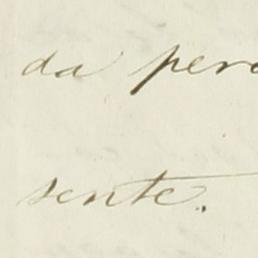 da pero
sente.